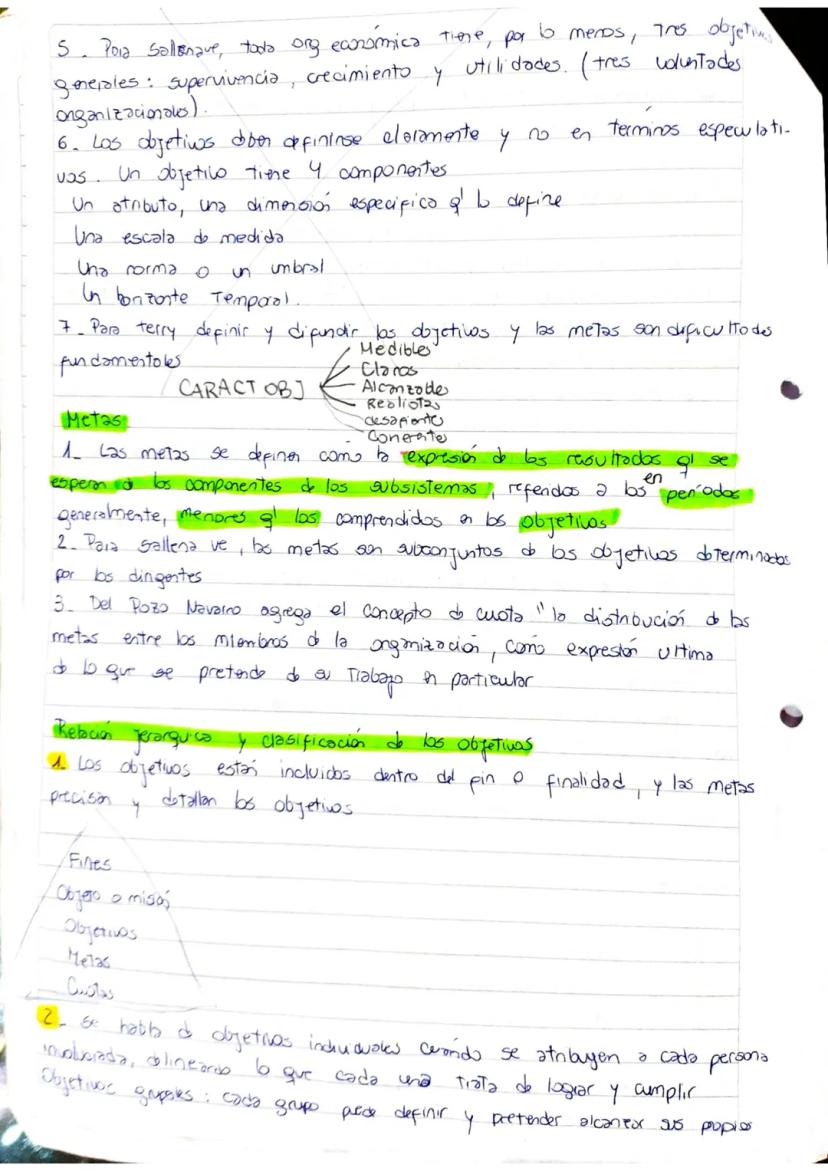 5_ Para Sallenave, toda org económica tiene, por lo menos, Tres objetivos
generales: supervivencia, crecimiento y utilidades. (tres voluntades
organizacionales).
6_ Los objetivos deben definirse claramente y no en terminos especulati-
vos. Un objetivo tiene 4 componentes
Un atributo, una dimensión especifico q' lo define
Una escala de medida
Una norma o un umbral
Un horizonte Temporal.
7_ Para terry definir y difundir los objetivos y las metas son dificultades
fundamentales
CARACT OBJ
Medibles
Claros
Alcanzade
Realistas
desafiante
Conerente
Metas
1_ Las metas se definen como la expresión de los resultados q' se
esperan de los componentes de los subsistemas, referidos a los en períodos
generalmente, menores q' los comprendidos en los objetivos
2_ Para Sallena ve, las metas son subconjuntos de los objetivos determinados
por los dirigentes
3_ Del Pozo Navarro agrega el concepto de cuota "la distribución de las
metas entre los miembros de la organización, como expresión ultima
de lo que se pretende de su Trabajo en particular
Relación jerarquica y clasificación de los objetivos
1. Los objetivos están incluidos dentro del fin o finalidad, y las metas
precisan y detallan los objetivos
Fines
Objeto o misión
Objetivos
Metas
Cuotas
2_ Se habla de objetivos individuales cuando se atribuyen a cada persona
involucrada, delineando lo que cada una trata de lograr y cumplir
Objetivos grupales: cada grupo puede definir y pretender alcanzar sus propios